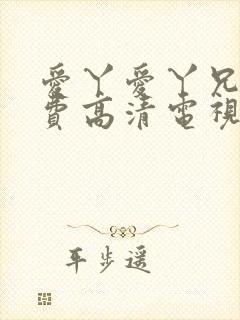 愛丫愛丫兄
費高清電視
平步遥